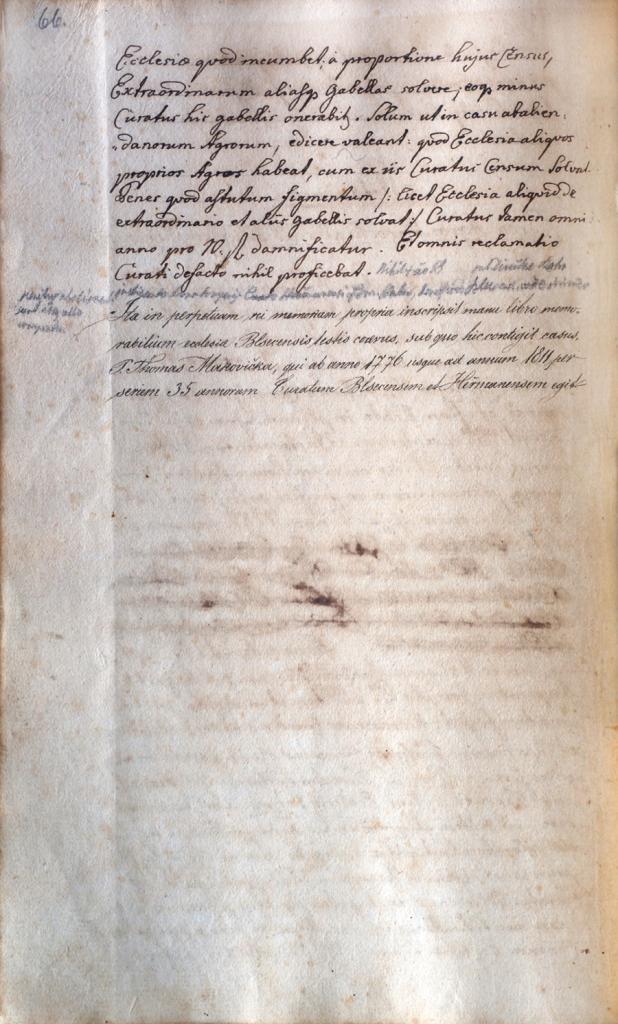 66.
Ecclesiæ quod incumbet; à proportione hujus Censûs,
Extraordinarum aliasq̃ Gabellas solvere; eoq̃ minus
Curatus his gabellis onerabit̃. Solum ut in casu abalien„
„dandorum Agrorum, edicere valeant: quod Ecclesia aliquos
proprios Agros habeat, cum ex iis Curatus Censum solvat.
Penes quod astutum figmentum /: licet Ecclesia aliquid de
extraordinario et aliis gabellis solvat :/ Curatus tamen omni
anno pro 10. fl damnificatur. Et omnis reclamatio
Curati de facto nihil proficebat.
Ita in perpetuam rei memoriam propria inscripsit manu libro memo-
rabilium ecclesiæ Blsecensis testis coævus, sub quo hic contigit casus,
P. Thomas Makovička, qui ab anno 1776 usque ad annum 1811 per
seriem 35 annorum Curatum Blsecensem et Heřmanensem egit